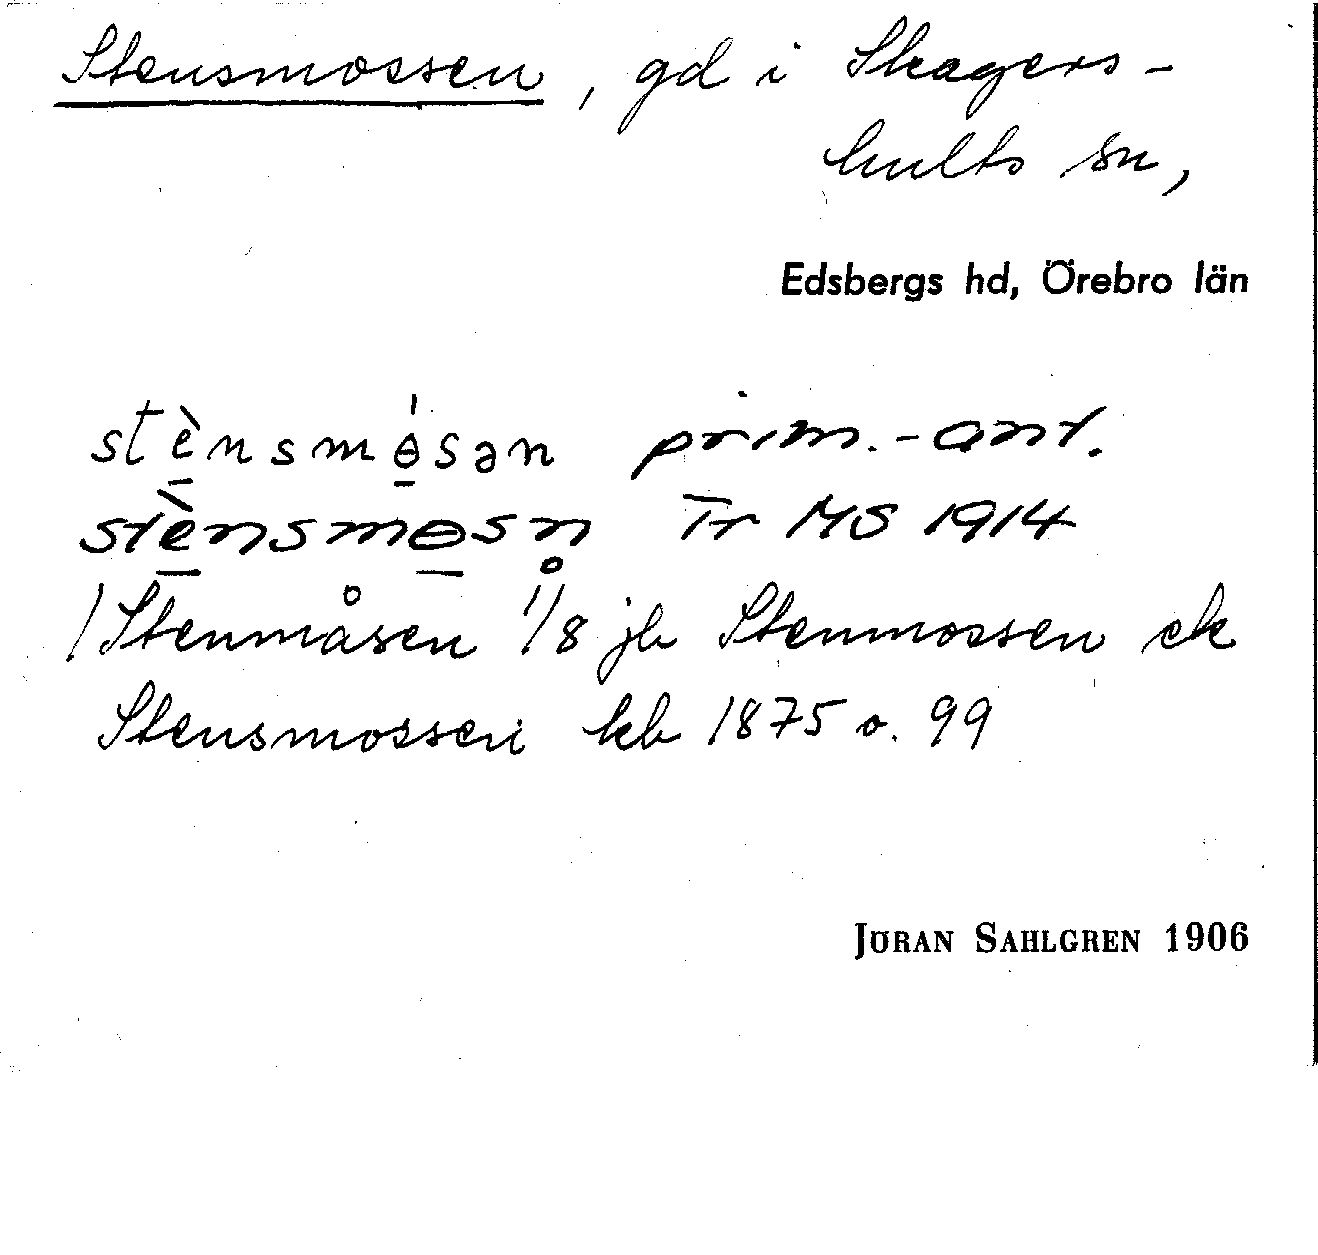 Stensmossen, gd i Skagers-
hults sn,
Edsbergs hd, Örebro län
stè̠nsmɵ̠́sən prim.-ant.
stè̠nsmɵ̠sn̥ Tr MS 1914
/Stenmåsen 1/8 jb Stenmossen ek
Stensmossen kb 1875 o. 99
JÖRAN SAHLGREN 1906